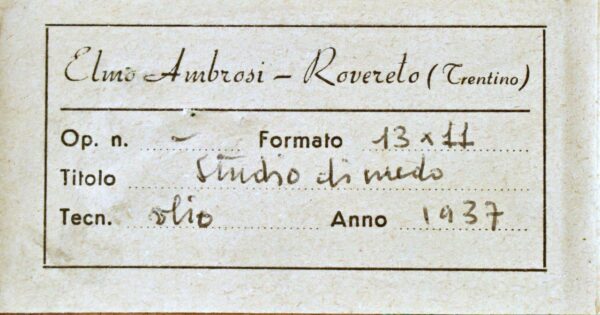 Elmo Ambrosi - Rovereto (Trentino)
Op. n. - Formato 13 x 11
Titolo Studio di nudo
Tecn. olio Anno 1937